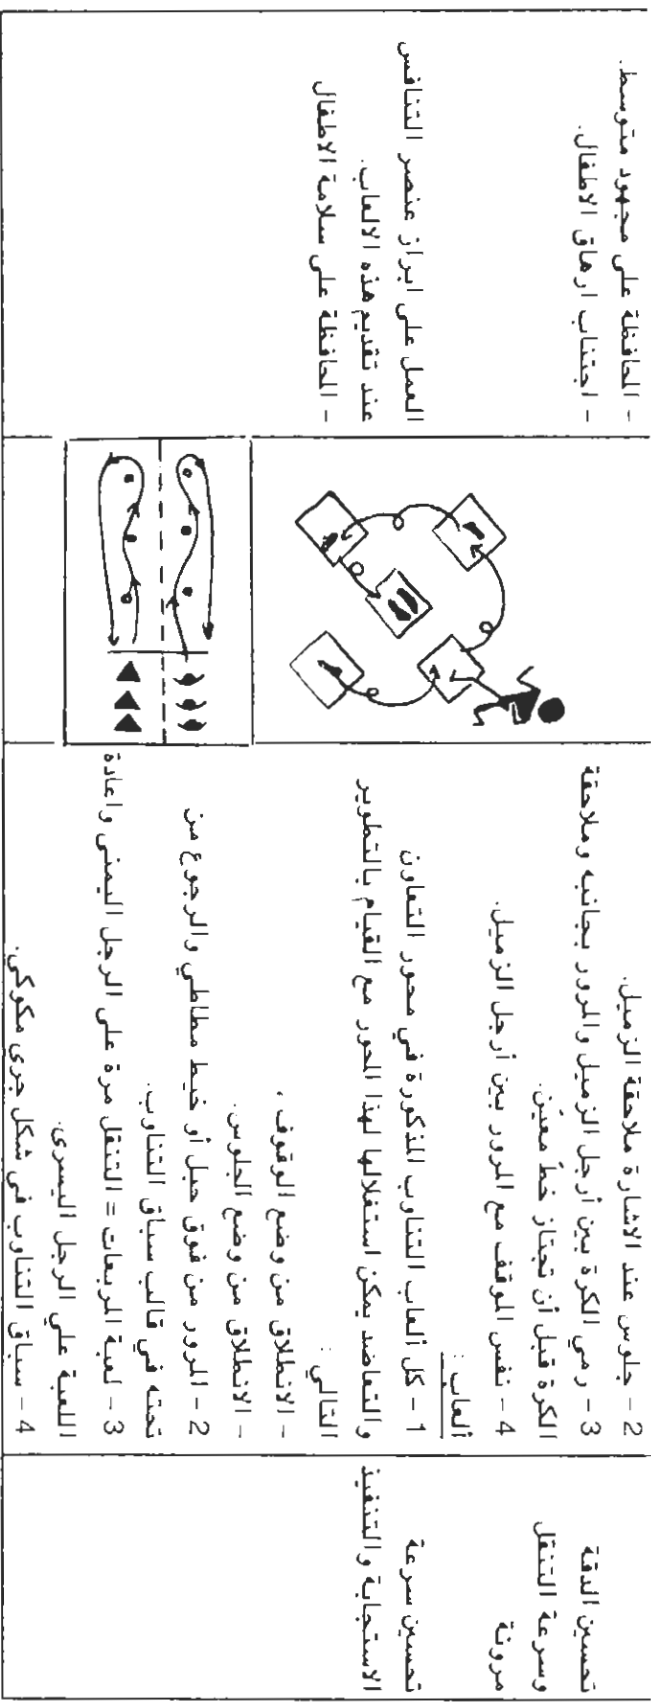 تحسين الدقة
وسرعة التنقل
مرونة
تحسين سرعة
الاستجابة والتنفيذ
2 - جلوس عند الاشارة ملاحقة الزميل.
3 - رمي الكرة بين أرجل الزميل والمرور بجانبه وملاحقة
الكرة قبل أن تجتاز خطّ معيّن.
4 - نفس الموقف مع المرور بين أرجل الزميل.
ألعاب :
1 - كل ألعاب التناوب المذكورة في محور التعاون
والتعاضد يمكن استغلالها لهذا المحور مع القيام بالتطوير
التالي :
- الانطلاق من وضع الوقوف ،
- الانطلاق من وضع الجلوس.
2 - المرور من فوق حبل أو خيط مطاطي والرجوع من
تحته في قالب سباق التناوب.
3 - لعبة المربعات = التنقل مرة على الرجل اليمنى واعادة
اللعبة على الرجل اليسرى.
4 - سباق التناوب في شكل جري مكوكي.
- المحافظة على مجهود متوسط.
- اجتناب ارهاق الاطفال.
العمل على ابراز عنصر التنافس
عند تقديم هذه الالعاب.
- المحافظة على سلامة الاطفال